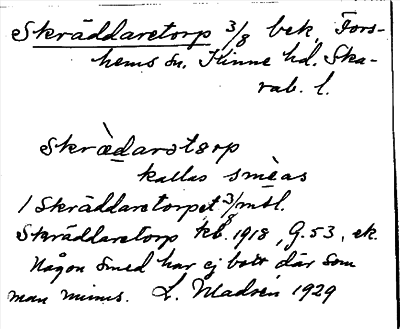 Skräddaretorp 3/8 bek, Fors-
hems sn. Kinne hd. Ska-
rab. l.
skrèdarstɵrp
kallas smèas
1 Skräddaretorpet 3/8 mtl.
Skräddaretorp kb. 1918, G. 53, ek.
Någon smed har ej bott där som
man minns. L. Madsén 1929